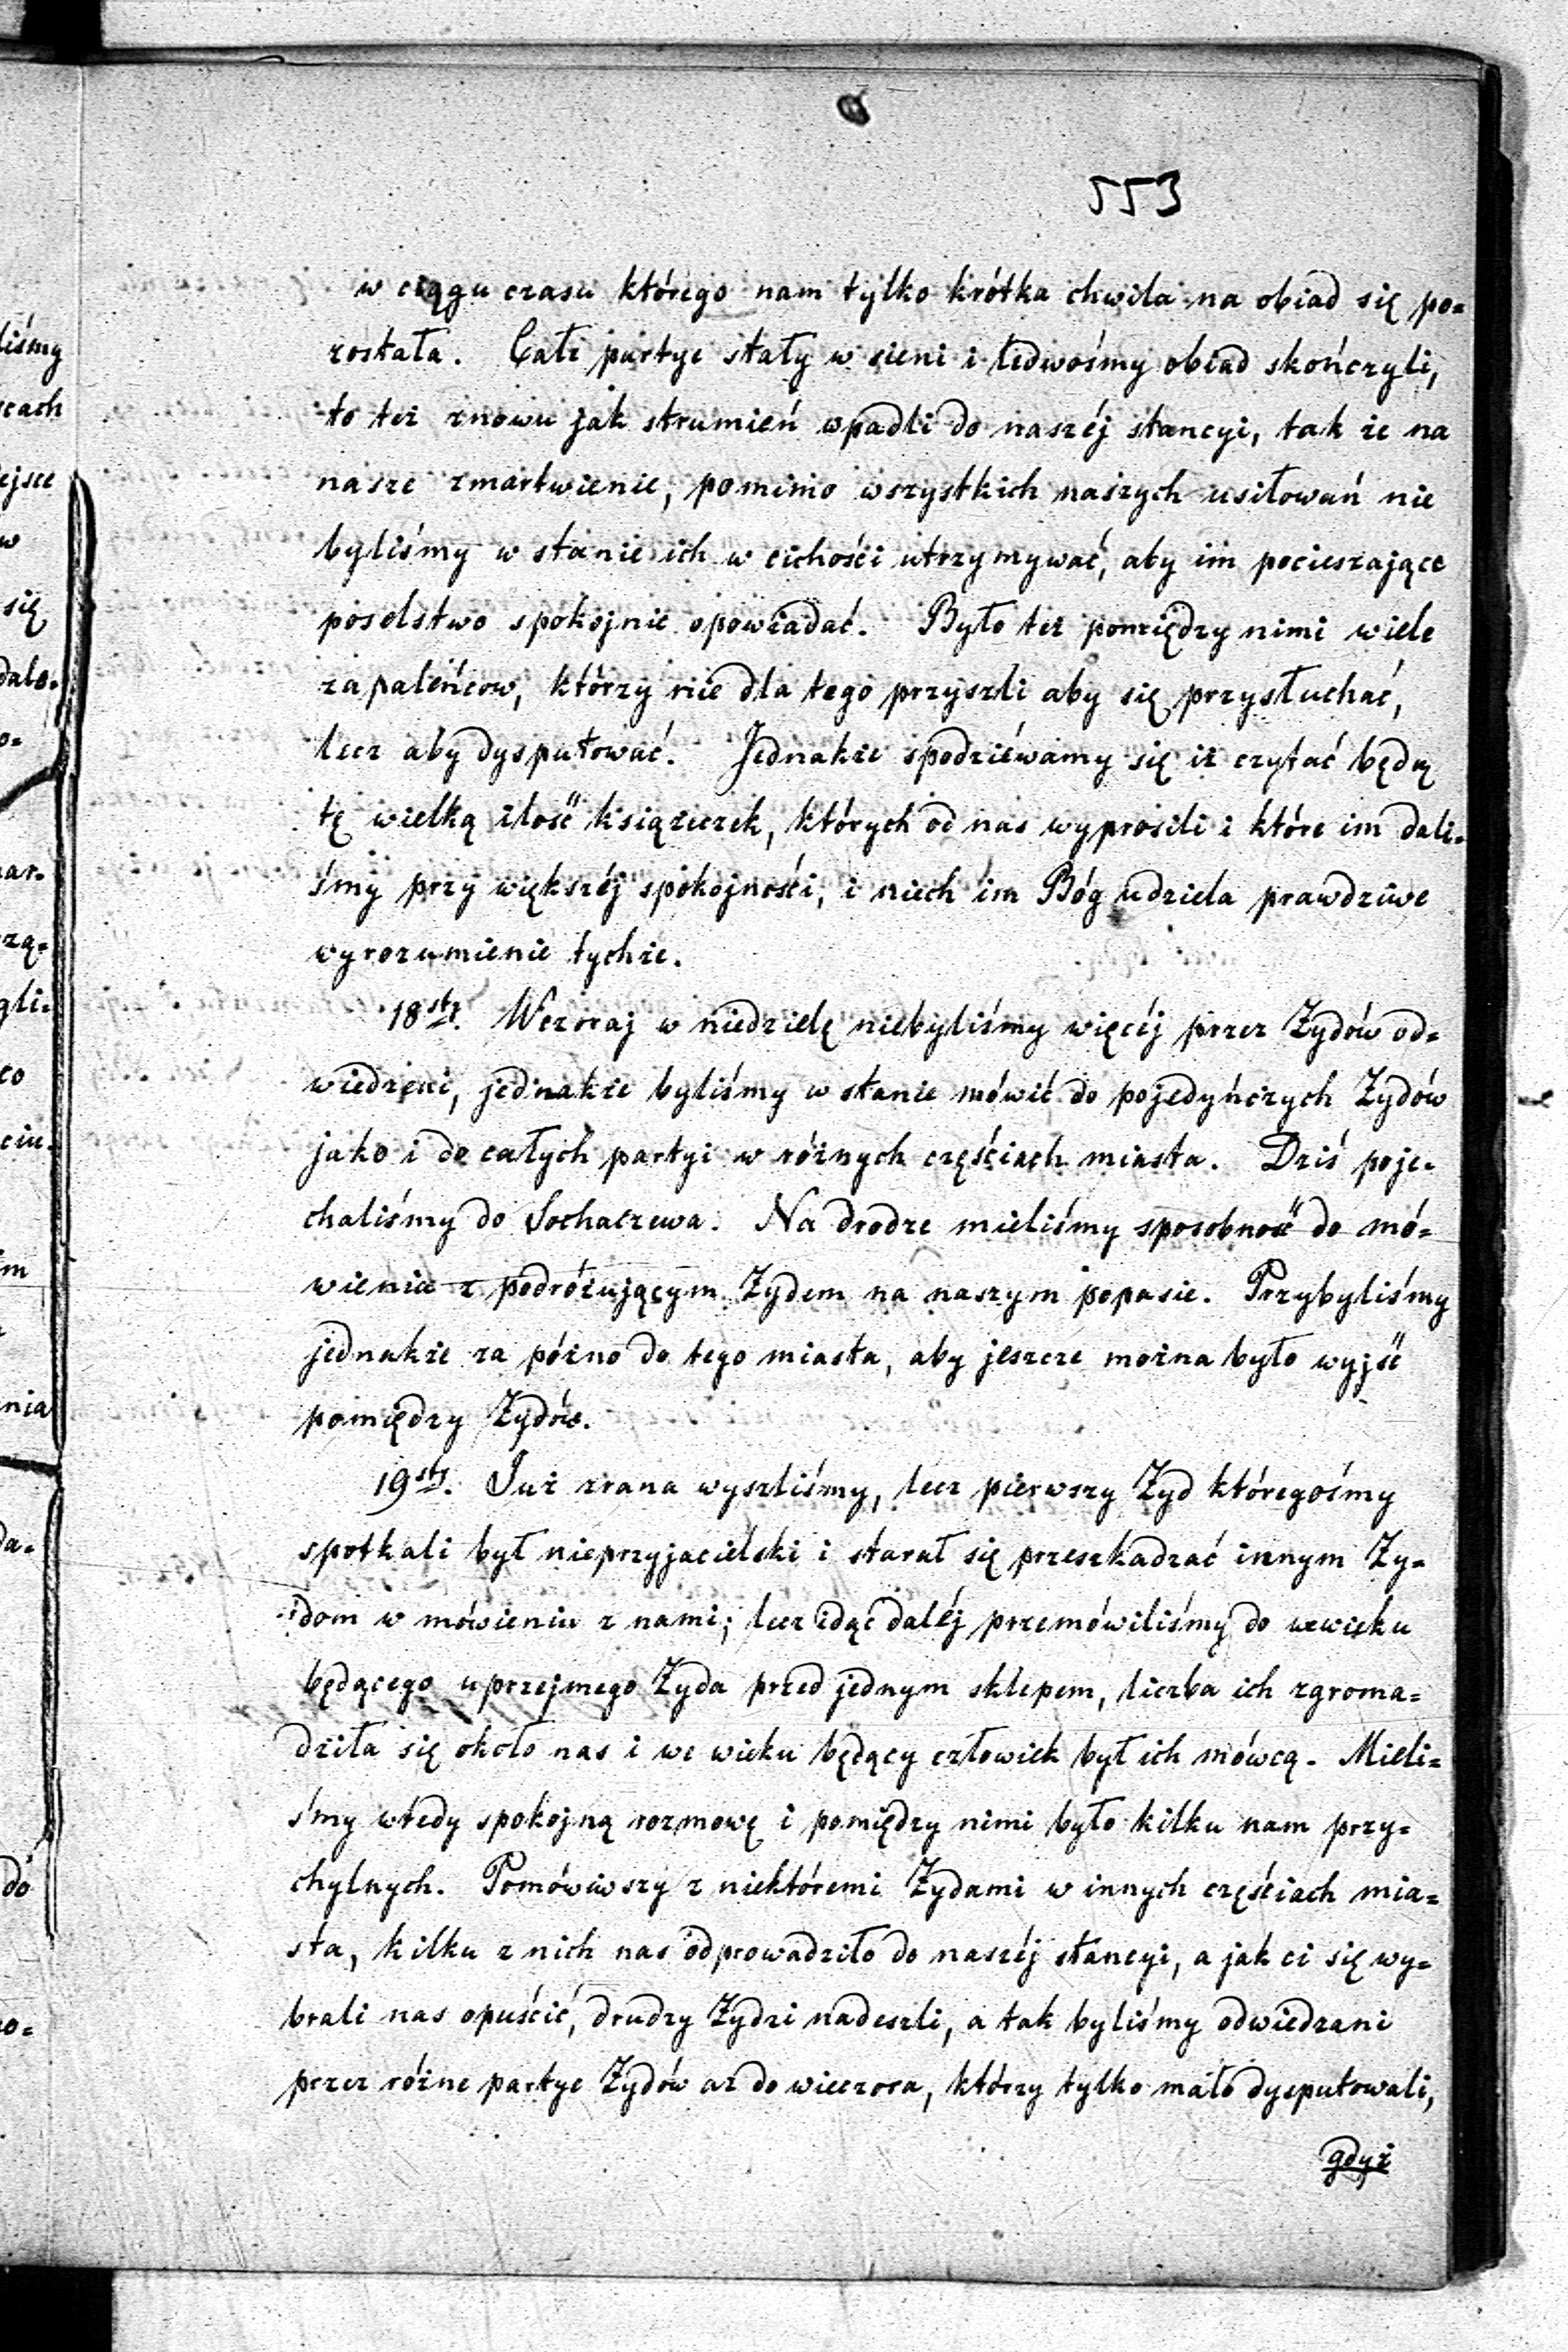 553
w ciągu czasu którego nam tylko krótka chwila na obiad się po-
zostala. Całe partye stały w sieni i ledwośmy obiad skończyli,
to też znowu jak strumień wpadli do naszéj stancyi, tak że na
nasze zmartwienie, pomimo wszystkich naszych usiłowań nie
byliśmy w stanie ich w cichości utrzymywać, aby im pocieszające
poselstwo spokojnie opowiadać. Było też pomiędzy nimi wiele
zapaleńcow, którzy nie dla tego przyszli aby się przysłuchać,
lecz aby dysputować. Jednakże spodziéwamy się iż czytać będą
tę wielką ilość książeczek, których od nas wyprosili i które im dali-
śmy przy większéj spokojności, i niech im Bóg udziela prawdziwe
wyrozumienie tychże.
18sty. Wczoraj w niedzielę niebyliśmy więcéj przez Żydów od-
wiedzeni, jednakże byliśmy w stanie mówić do pojedyńczych Żydów
jako i do całych partyi w różnych częściach miasta. Dziś poje-
chaliśmy do Sochaczewa. Na drodze mieliśmy sposobność do mó-
wienia z podróżującym Żydem na naszym popasie. Przybyliśmy
jednakże za pózno do tego miasta, aby jeszcze można było wyjść
pomiędzy Żydów.
19sty. Już zrana wyszliśmy, lecz pierwszy Żyd któregośmy
spotkali był nieprzyjacielski i starał się przeszkadzać innym Ży-
dom w mówieniu z nami; lecz idąc daléj przemówiliśmy do wewieku
będącego uprzejmego Żyda przed jednym sklepem, liczba ich zgroma-
dziła się około nas i we wieku będący człowiek był ich mówcą. Mieli-
śmy wtedy spokojną rozmowę i pomiędzy nimi było kilku nam przy-
chylnych. Pomówiwszy z niektóremi Żydami w innych częściach mia-
sta, kilku z nich nas odprowadziło do naszéj stancyi, a jak ci się wy-
brali nas opuścić, drudzy Żydzi nadeszli, a tak byliśmy odwiedzani
przez różne partye Żydów aż do wieczora, którzy tylko mało dysputowali,
gdyż